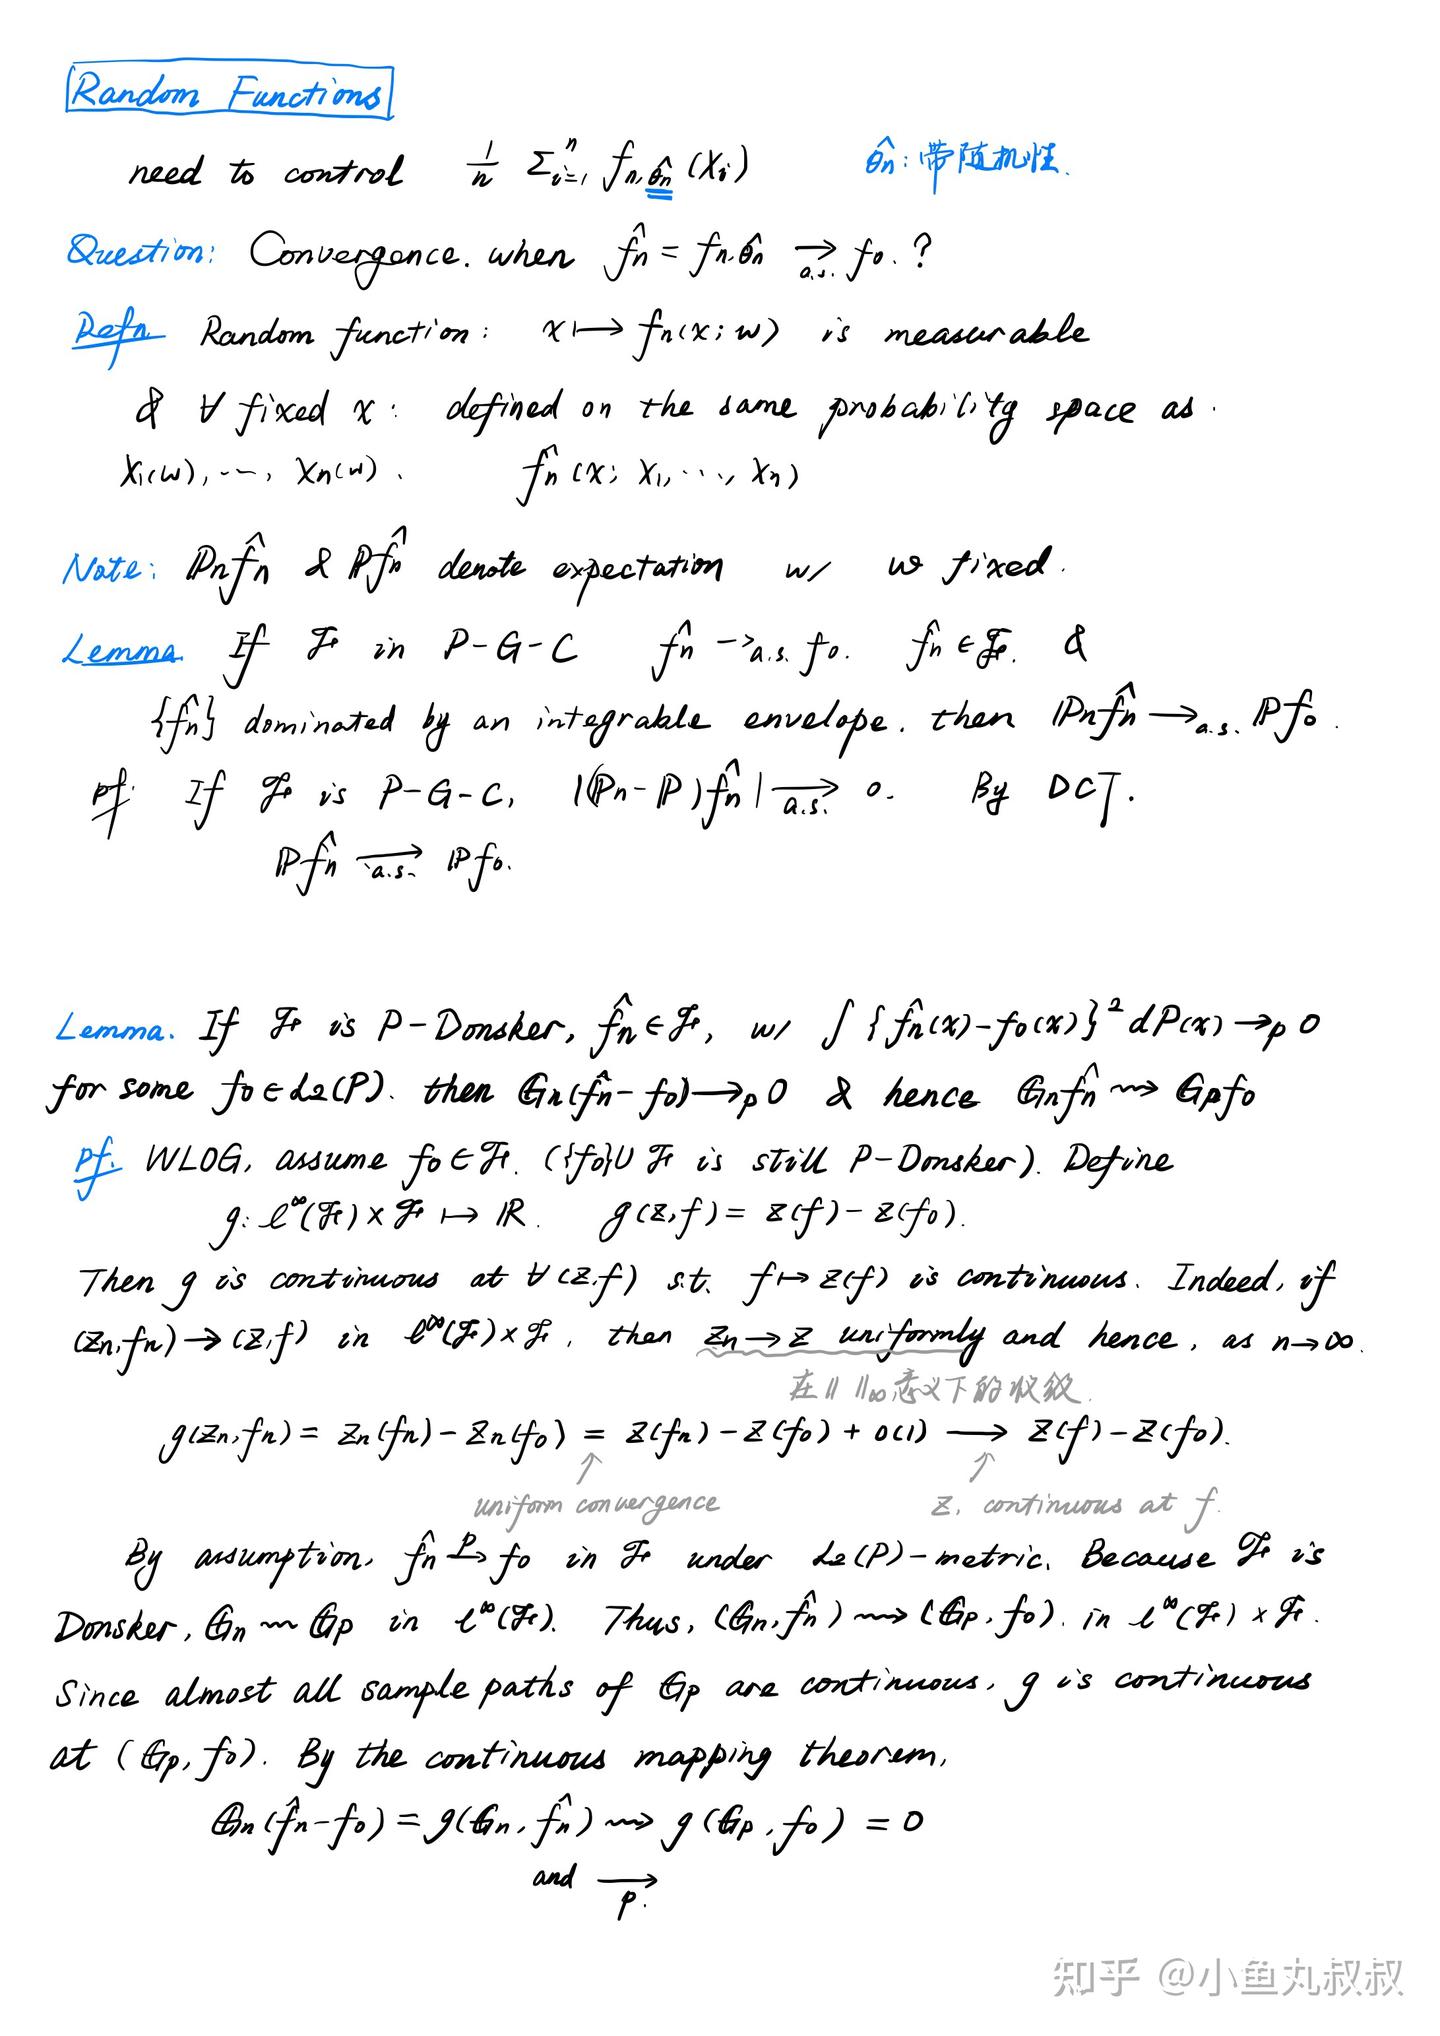 Random Functions
need to control 1/n Σᵢ₌₁ⁿ f_{n,θ̂n}(Xᵢ) θ̂n: 带随机性.
Question: Convergence. when f̂n = f_{n,θ̂n} →a.s. f₀.?
Defn Random function: x ↦ fn(x; w) is measurable
& ∀ fixed x: defined on the same probability space as.
X₁(w), ⋯, Xn(w). f̂n(x; X₁, ⋯, Xn)
Note: ℙn f̂n & ℙ f̂n denote expectation w/ w fixed.
Lemma. If ℱ in P-G-C f̂n →a.s. f₀. f̂n ∈ ℱ. &
{f̂n} dominated by an integrable envelope. then ℙn f̂n →a.s. ℙ f₀.
pf. If ℱ is P-G-C, |(ℙn-ℙ)f̂n| →a.s. 0. By DCT.
ℙ f̂n →a.s. ℙ f₀.
Lemma. If ℱ is P-Donsker, f̂n ∈ ℱ, w/ ∫{f̂n(x)-f₀(x)}² dP(x) →p 0
for some f₀ ∈ L₂(P). then 𝔾n(f̂n-f₀) →p 0 & hence 𝔾n f̂n ⇝ 𝔾p f₀
pf. WLOG, assume f₀ ∈ ℱ. ({f₀}∪ℱ is still P-Donsker). Define
g: ℓ^∞(ℱ)×ℱ ↦ ℝ. g(z,f) = z(f) - z(f₀).
Then g is continuous at ∀(z,f) s.t. f ↦ z(f) is continuous. Indeed, if
(zn,fn) → (z,f) in ℓ^∞(ℱ)×ℱ, then zn → z uniformly and hence, as n→∞.
在‖ ‖∞意义下的收敛.
g(zn,fn) = zn(fn) - zn(f₀) = z(fn) - z(f₀) + o(1) → z(f) - z(f₀).
↑ ↑
uniform convergence z, continuous at f.
By assumption, f̂n →P f₀ in ℱ under L₂(P)-metric. Because ℱ is
Donsker, 𝔾n ⇝ 𝔾p in ℓ^∞(ℱ). Thus, (𝔾n, f̂n) ⇝ (𝔾p, f₀). in ℓ^∞(ℱ)×ℱ.
Since almost all sample paths of 𝔾p are continuous, g is continuous
at (𝔾p, f₀). By the continuous mapping theorem,
𝔾n(f̂n-f₀) = g(𝔾n, f̂n) ⇝ g(𝔾p, f₀) = 0
and →p.
知乎 @小鱼丸叔叔